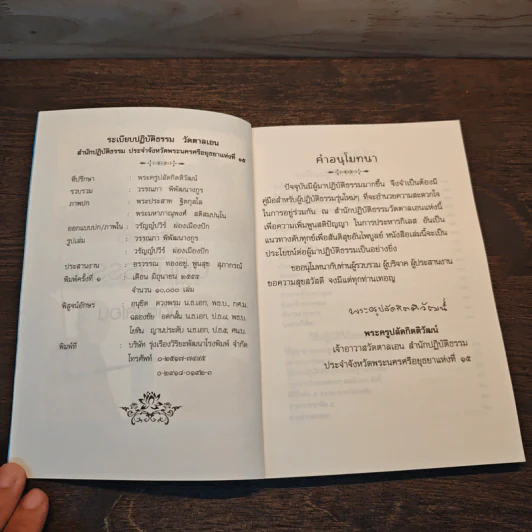 ระเบียบปฏิบัติธรรม วัดตาลเอน
สำนักปฏิบัติธรรม ประจำจังหวัดพระนครศรีอยุธยาแห่งที่ ๑๕
ที่ปรึกษา : พระครูปลัดกิตติวัฒน์
รวบรวม : วรรณภา พิพัฒนางกูร
ภาพปก : พระประสาท ฐิตกุสโล
พระมหาภาณุพงศ์ สติสมฺปนฺโน
ออกแบบปก/ภาพใน : วรัญญ์ปวีร์ ผ่องเมืองปัก
รูปเล่ม : วรรณภา พิพัฒนางกูร
วรัญญ์ปวีร์ ผ่องเมืองปัก
ประสานงาน : อรวรรณ ทองอยู่, พูนสุข สุภากรณ์
พิมพ์ครั้งที่ ๑ : เดือน มิถุนายน ๒๕๕๕
จำนวน ๑๐,๐๐๐ เล่ม
พิสูจน์อักษร : อนุธิต ดวงพรม น.ธ.เอก, พธ.บ., กศ.ม.
ฉลองชัย น.ธ.เอก, ป.ธ.๔, พธ.บ.
ไฮพัน ญานประดับ น.ธ.เอก, ป.ธ.๔, ศน.บ.
พิมพ์ที่ : บริษัท รุ่งเรืองวิริยะพัฒนาโรงพิมพ์ จำกัด
โทรศัพท์ ๐-๒๕๑๗-๗๗๔๕
๐-๒๙๑๘-๐๑๙๒-๓
คำอนุโมทนา
ปัจจุบันมีผู้มาปฏิบัติธรรมมากขึ้น จึงจำเป็นต้องมี
คู่มือสำหรับผู้ปฏิบัติธรรมรุ่นใหม่ๆ ที่จะอำนวยความสะดวกใจ
ในการอยู่ร่วมกัน ณ สำนักปฏิบัติธรรมวัดตาลเอนแห่งนี้
เพื่อความเพิ่มพูนสติปัญญา ในการประหารกิเลส อันเป็น
แนวทางดับทุกข์เพื่อสันติสุขอันไพบูลย์ หนังสือเล่มนี้จะเป็น
ประโยชน์ต่อผู้มาปฏิบัติธรรมเป็นอย่างยิ่ง
ขออนุโมทนากับท่านผู้รวบรวม ผู้บริจาค ผู้ประสานงาน
ขอความสุขสวัสดี จงมีแด่ทุกท่านเทอญ
พระครูปลัดกิตติวัฒน์
พระครูปลัดกิตติวัฒน์
เจ้าอาวาสวัดตาลเอน สำนักปฏิบัติธรรม
ประจำจังหวัดพระนครศรีอยุธยาแห่งที่ ๑๕